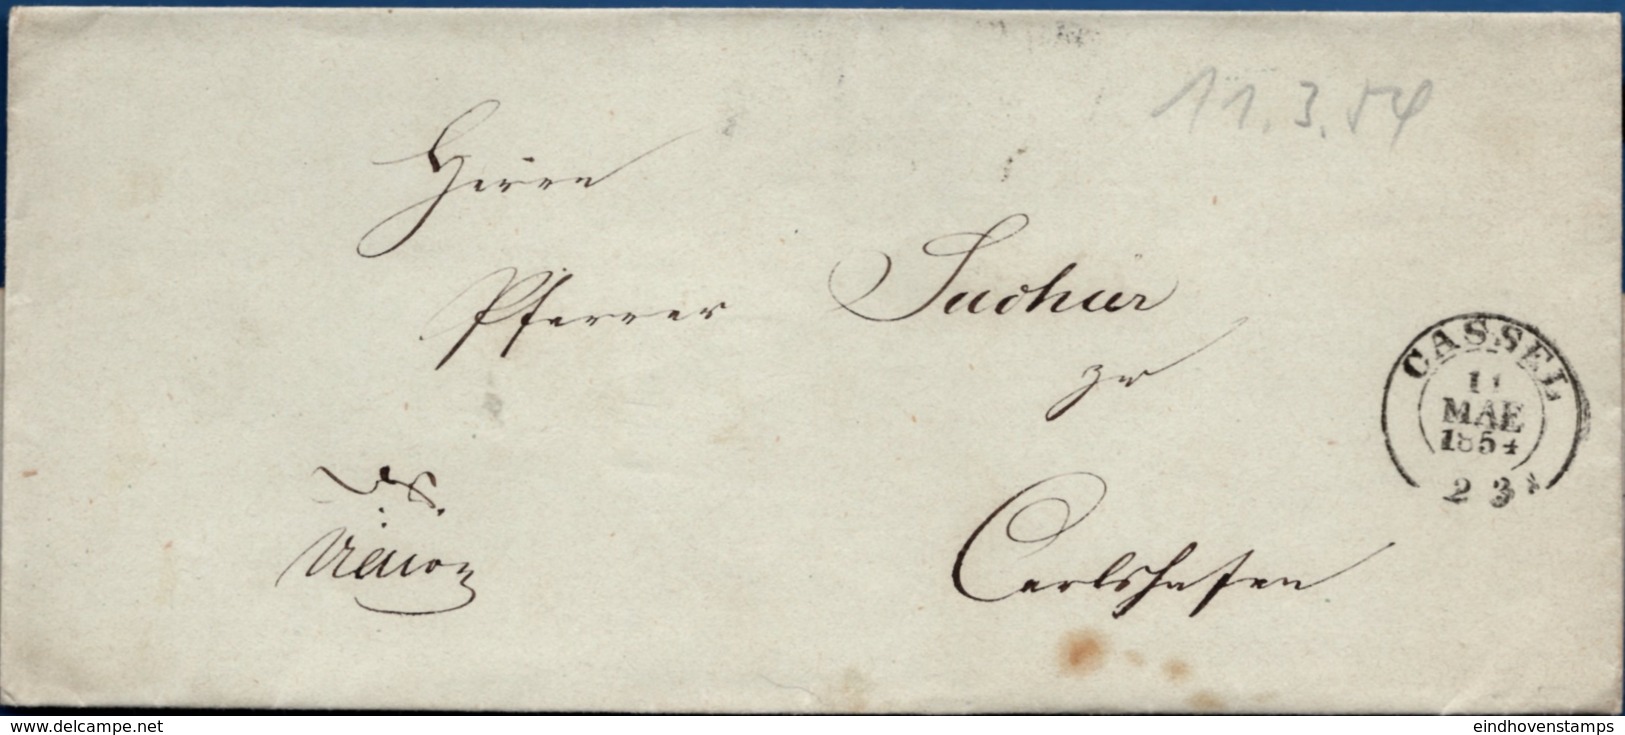 11.3.54
Herrn
Pfarrer Suchier
zu
Carlshafen
CASSEL
11
MAE
1854
2 3
delcampe.net
eindhovenstamps